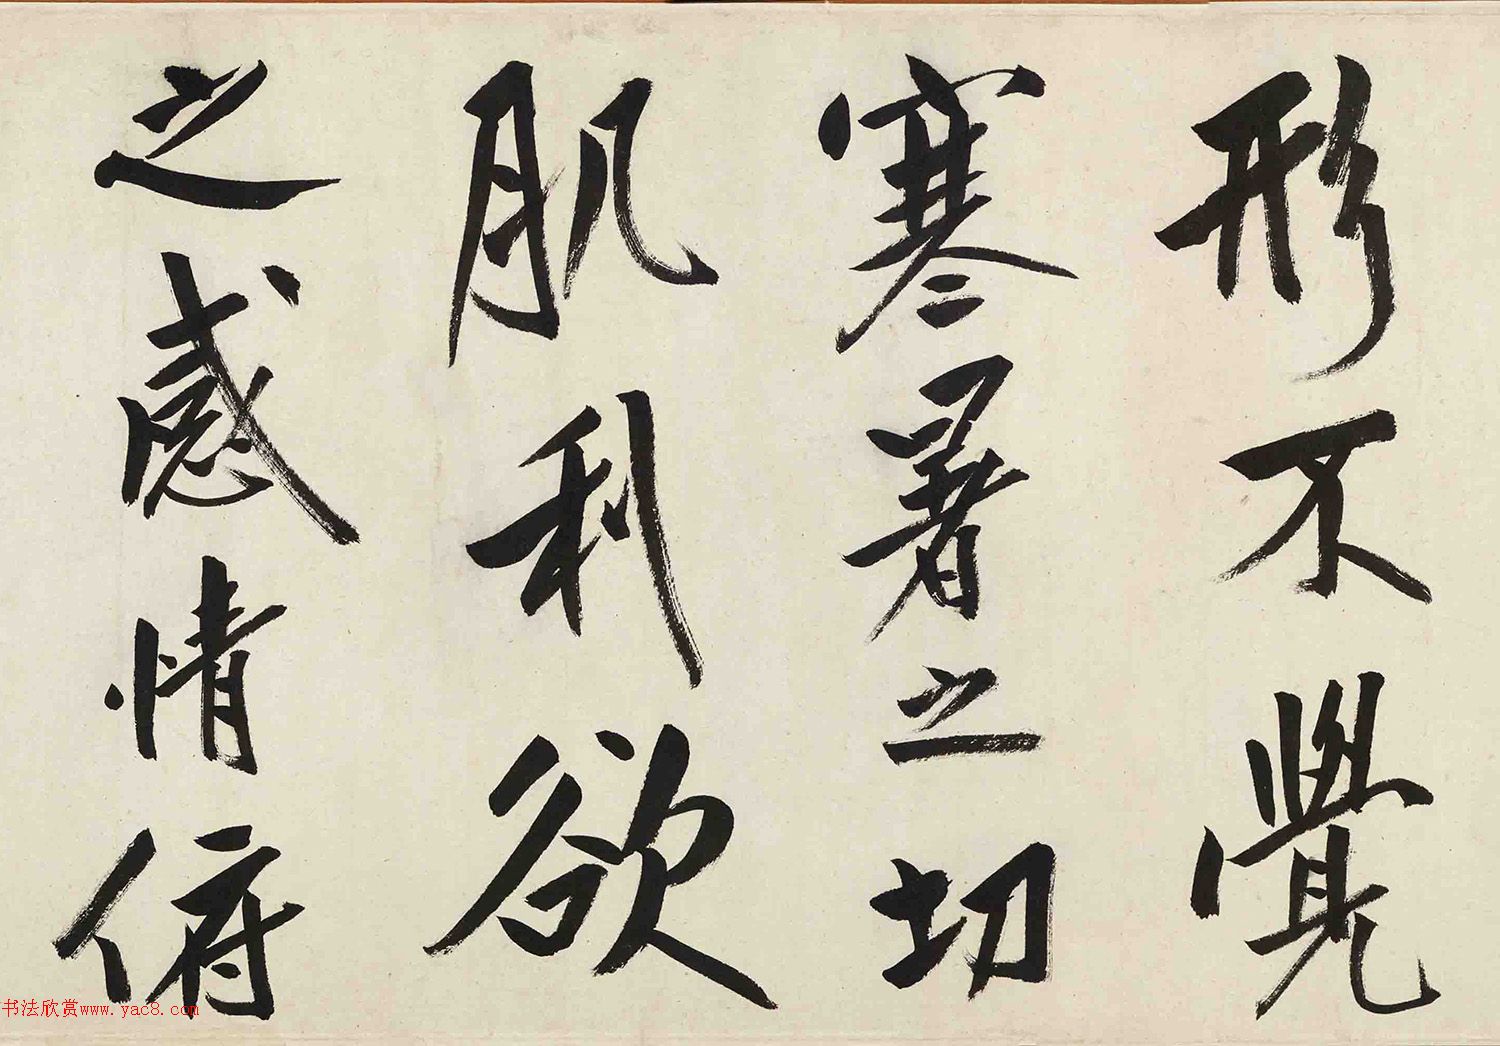 形不覺
寒暑之切
肌利欲
之感情俯
书法欣赏www.yac8.com